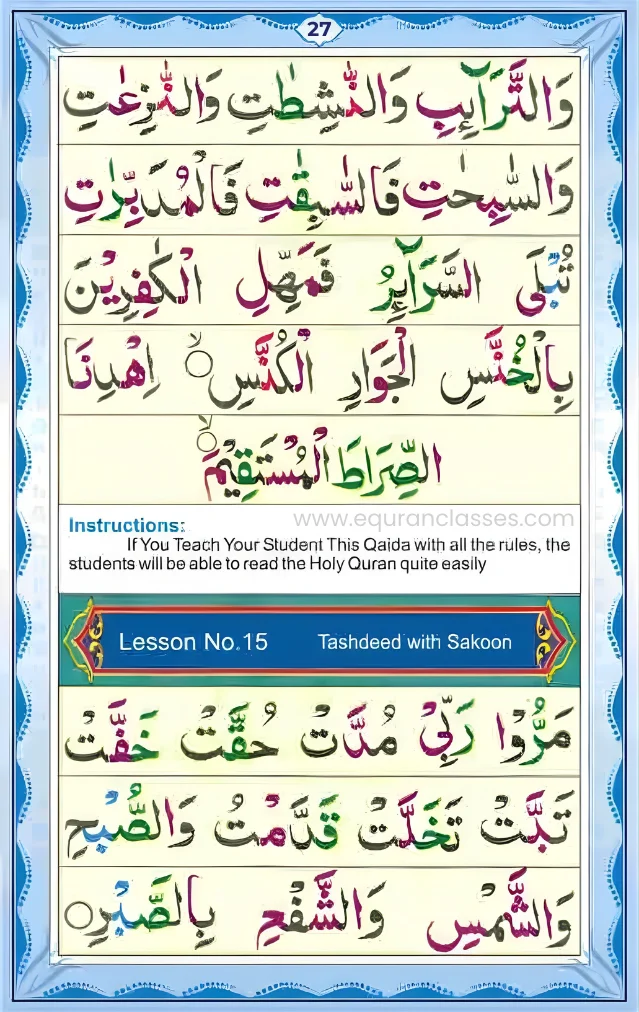 27
وَالتَّرَآئِبِ وَالنّٰشِطٰتِ وَالنّٰزِعٰتِ
وَالسّٰبِحٰتِ فَالسّٰبِقٰتِ فَالْمُدَبِّرٰتِ
تُبْلَى السَّرَآئِرُ فَمَهِّلِ الْكٰفِرِيْنَ
بِالْخُنَّسِ الْجَوَارِ الْكُنَّسِ ۙ اِهْدِنَا
الصِّرَاطَ الْمُسْتَقِيْمَ ۙ
Instructions:
www.equranclasses.com
If You Teach Your Student This Qaida with all the rules, the
students will be able to read the Holy Quran quite easily
Lesson No.15 Tashdeed with Sakoon
مَرُّوْا رَبِّيْ مُدَّتْ حُقَّتْ خَفَّتْ
تَبَّتْ تَخَلَّتْ قَدَّمْتُ وَالصُّبْحِ
وَالشَّمْسِ وَالشَّفْعِ بِالصَّبْرِ